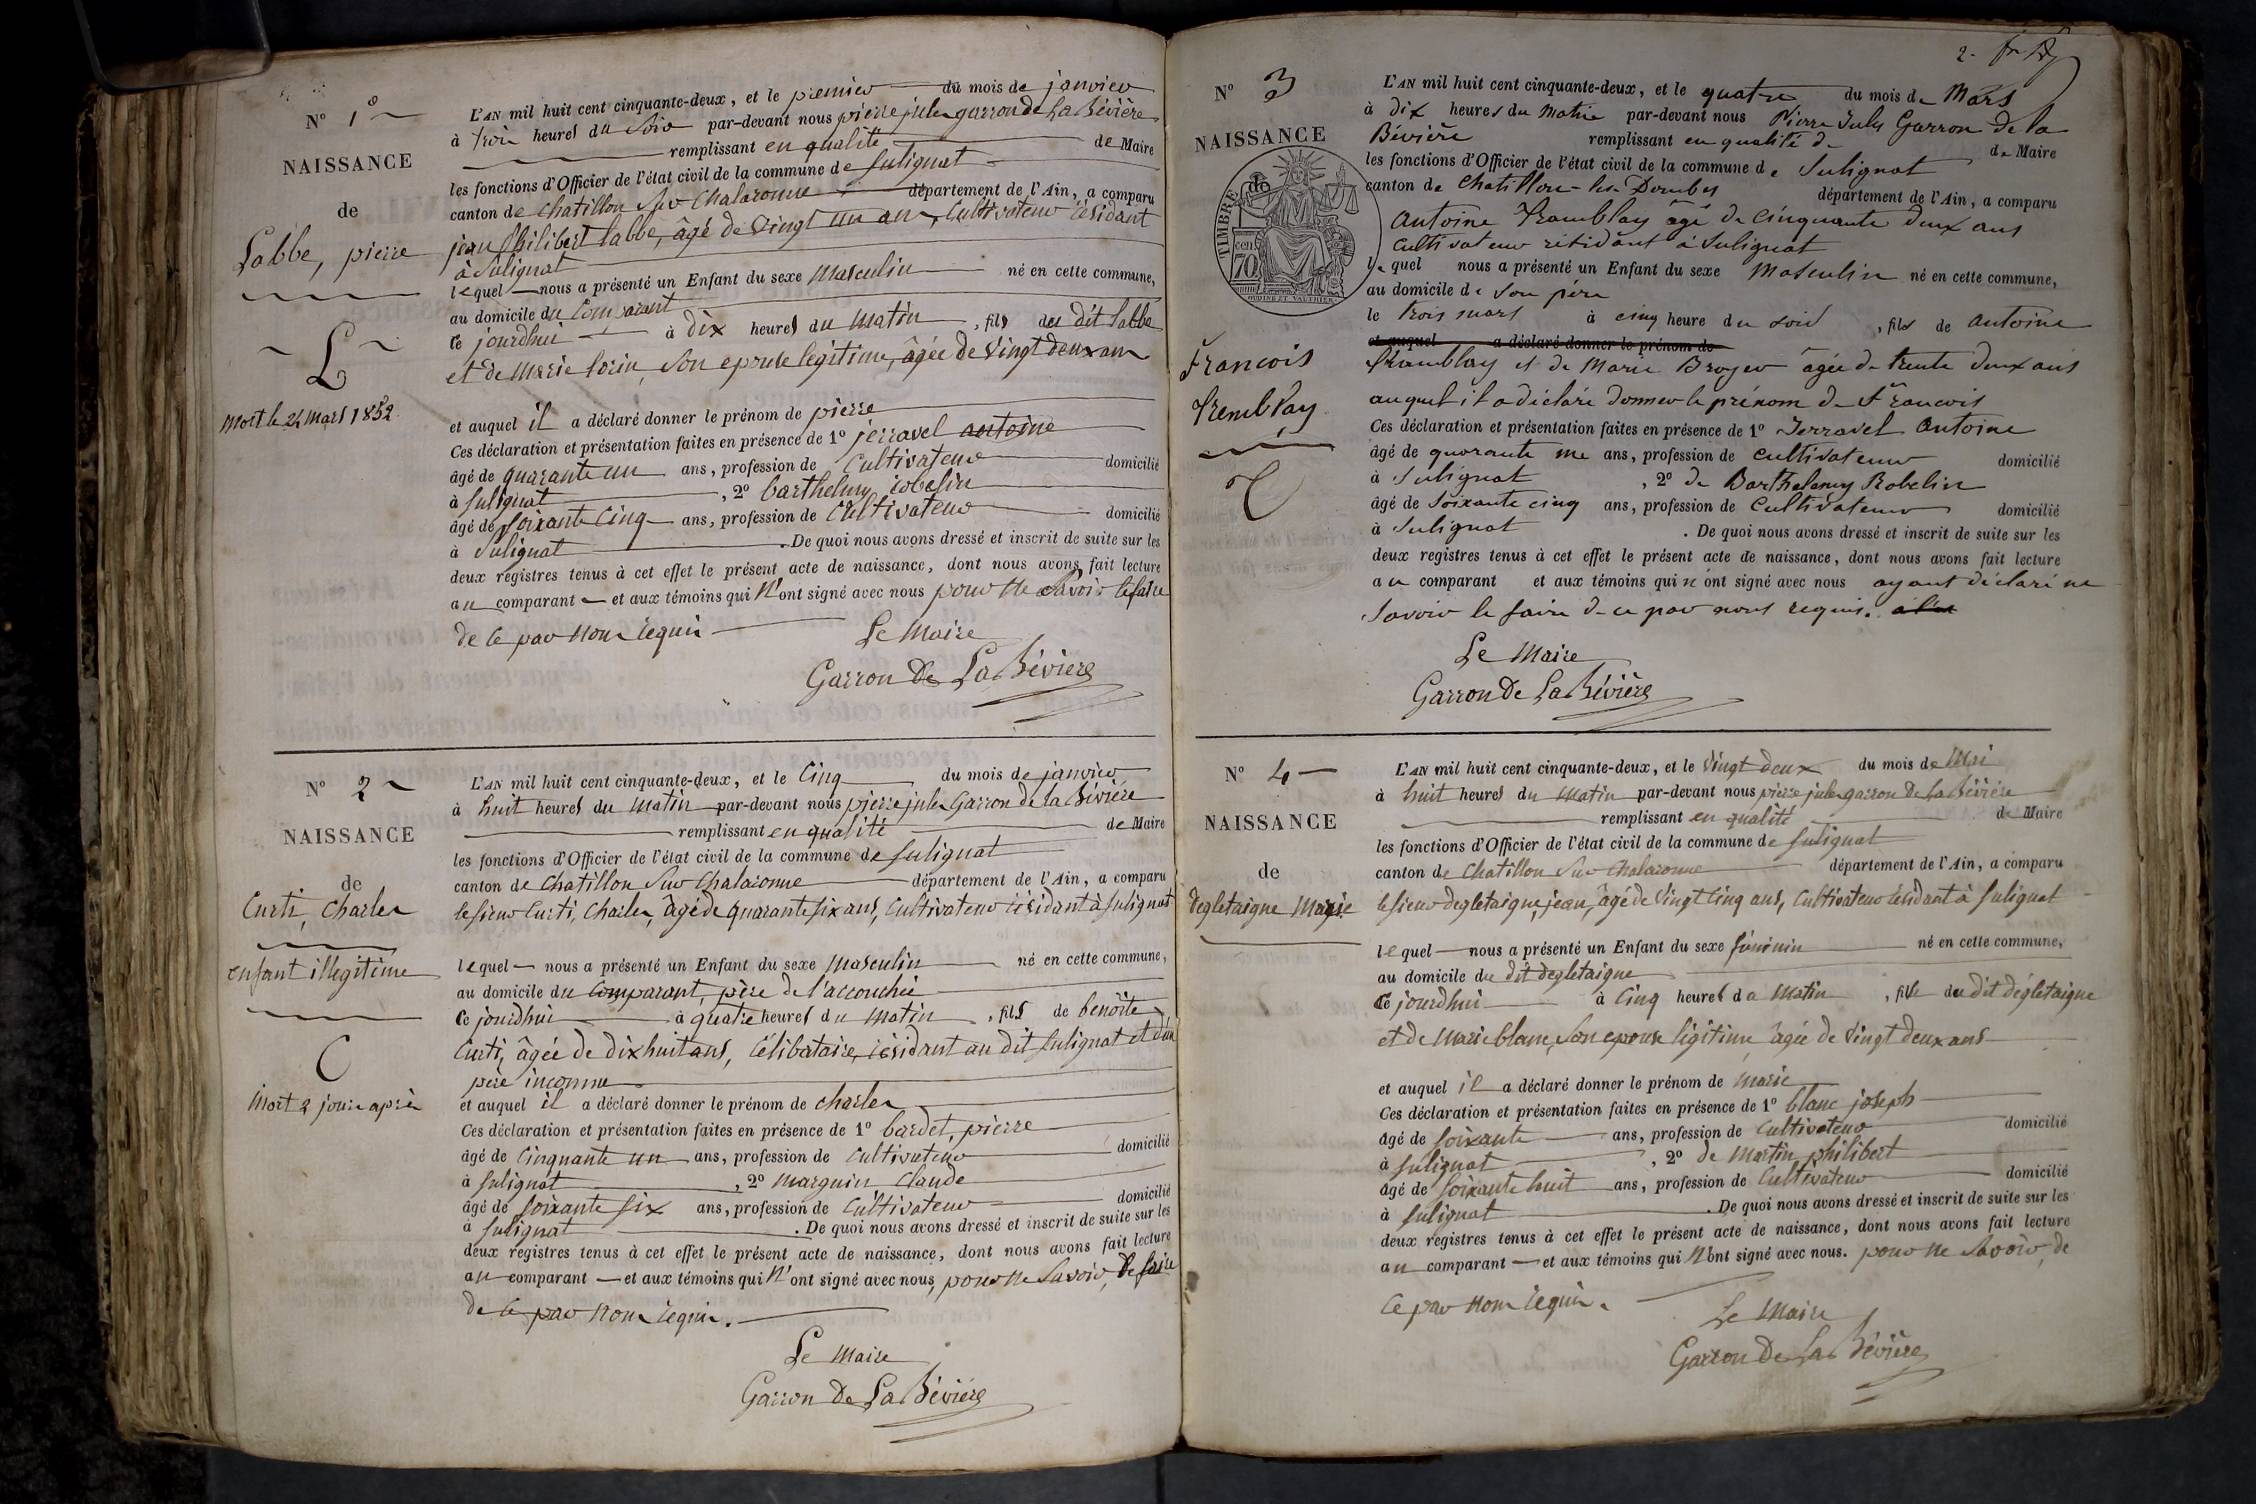 Nº 1º
NAISSANCE
de
Labbe, pierre
L
Mort le 24 Mars 1852
L'AN mil huit cent cinquante-deux, et le premier du mois de janvier
à trois heures du Soir par-devant nous pierre jules garron de La Bévière
remplissant en qualité de Maire
les fonctions d'Officier de l'état civil de la commune de Sulignat
canton de Chatillon Sur Chalaronne département de l'Ain, a comparu
jean philibert labbe, âgé de vingt un ans, Cultivateur résidant
à Sulignat
lequel nous a présenté un Enfant du sexe Masculin né en cette commune,
au domicile du Comparant
Ce jourdhui à dix heures du Matin, fils du dit labbe
et de Marie lorin, Son epouse legitime, âgée de vingt deux ans
et auquel il a déclaré donner le prénom de pierre
Ces déclaration et présentation faites en présence de 1º jerravel antoine
âgé de quarante un ans, profession de Cultivateur domicilié
à Sulignat, 2º barthelmy robelin
âgé de Soixante Cinq ans, profession de Cultivateur domicilié
à Sulignat. De quoi nous avons dressé et inscrit de suite sur les
deux registres tenus à cet effet le présent acte de naissance, dont nous avons fait lecture
au comparant et aux témoins qui N'ont signé avec nous pour Ne Savoir le faire
de Ce par Nous requis
Le Maire
Garron De La Bévière
Nº 2
NAISSANCE
de
Curti, Charles
enfant illegitime
C
Mort 2 jours après
L'AN mil huit cent cinquante-deux, et le Cinq du mois de janvier
à huit heures du Matin par-devant nous pierre jules Garron de la Bévière
remplissant en qualité de Maire
les fonctions d'Officier de l'état civil de la commune de Sulignat
canton de Chatillon Sur Chalaronne département de l'Ain, a comparu
le sieur Curti, Charles, âgé de quarante six ans, Cultivateur résidant à Sulignat
lequel nous a présenté un Enfant du sexe Masculin né en cette commune,
au domicile du Comparant, père de l'accouchée
Ce jourdhui à quatre heures du Matin, fils de benoite
Curti, âgée de dix huit ans, Célibataire, résidant au dit Sulignat et d'un
père inconnu
et auquel il a déclaré donner le prénom de Charles
Ces déclaration et présentation faites en présence de 1º bardet, pierre
âgé de Cinquante un ans, profession de Cultivateur domicilié
à Sulignat, 2º Marguin Claude
âgé de Soixante Six ans, profession de Cultivateur domicilié
à Sulignat. De quoi nous avons dressé et inscrit de suite sur les
deux registres tenus à cet effet le présent acte de naissance, dont nous avons fait lecture
au comparant et aux témoins qui N'ont signé avec nous, pour Ne Savoir, le faire
de Ce par Nous requis.
Le Maire
Garron De La Bévière
2.
Nº 3
NAISSANCE
de
TIMBRE
cen
70
OUDINE ET VAUTHIER
Francois
Tremblay
T
L'AN mil huit cent cinquante-deux, et le quatre du mois de Mars
à Dix heures du Matin par-devant nous Pierre Jules Garron de la
Bévière remplissant en qualité de de Maire
les fonctions d'Officier de l'état civil de la commune de Sulignat
canton de Chatillon-les-Dombes département de l'Ain, a comparu
Antoine Tramblay âgé de cinquante deux ans
cultivateur résidant à Sulignat
Lequel nous a présenté un Enfant du sexe Masculin né en cette commune,
au domicile de son père
le trois mars à cinq heure du soir, fils de Antoine
et auquel a déclaré donner le prénom de
Tramblay et de Marie Broyer âgée de trente deux ans
auquel il a déclaré donner le prénom de Francois
Ces déclaration et présentation faites en présence de 1º Jerravel Antoine
âgé de quarante une ans, profession de cultivateur domicilié
à Sulignat, 2º de Barthelemy Robelin
âgé de soixante cinq ans, profession de Cultivateur domicilié
à Sulignat. De quoi nous avons dressé et inscrit de suite sur les
deux registres tenus à cet effet le présent acte de naissance, dont nous avons fait lecture
au comparant et aux témoins qui n'ont signé avec nous ayant déclaré ne
savoir le faire de ce par nous requis.
Le Maire
Garron De La Bévière
Nº 4
NAISSANCE
de
degletaigne Marie
L'AN mil huit cent cinquante-deux, et le vingt deux du mois de Mai
à huit heures du Matin par-devant nous pierre jules garron De La Bévière
remplissant en qualité de Maire
les fonctions d'Officier de l'état civil de la commune de Sulignat
canton de Chatillon Sur Chalaronne département de l'Ain, a comparu
le sieur degletaigne, jean, âgé de vingt Cinq ans, Cultivateur résidant à Sulignat
lequel nous a présenté un Enfant du sexe féminin né en cette commune,
au domicile du dit degletaigne
Ce jourdhui à Cinq heures du Matin, fille du dit dégletaigne
et de Marie blanc, Son epouse légitime âgée de vingt deux ans
et auquel il a déclaré donner le prénom de Marie
Ces déclaration et présentation faites en présence de 1º blanc joseph
âgé de Soixante ans, profession de Cultivateur domicilié
à Sulignat, 2º de Martin philibert
âgé de Soixante huit ans, profession de Cultivateur domicilié
à Sulignat. De quoi nous avons dressé et inscrit de suite sur les
deux registres tenus à cet effet le présent acte de naissance, dont nous avons fait lecture
au comparant et aux témoins qui N'ont signé avec nous. pour Ne Savoir, de
Ce par Nous requis.
Le Maire
Garron De La Bévière